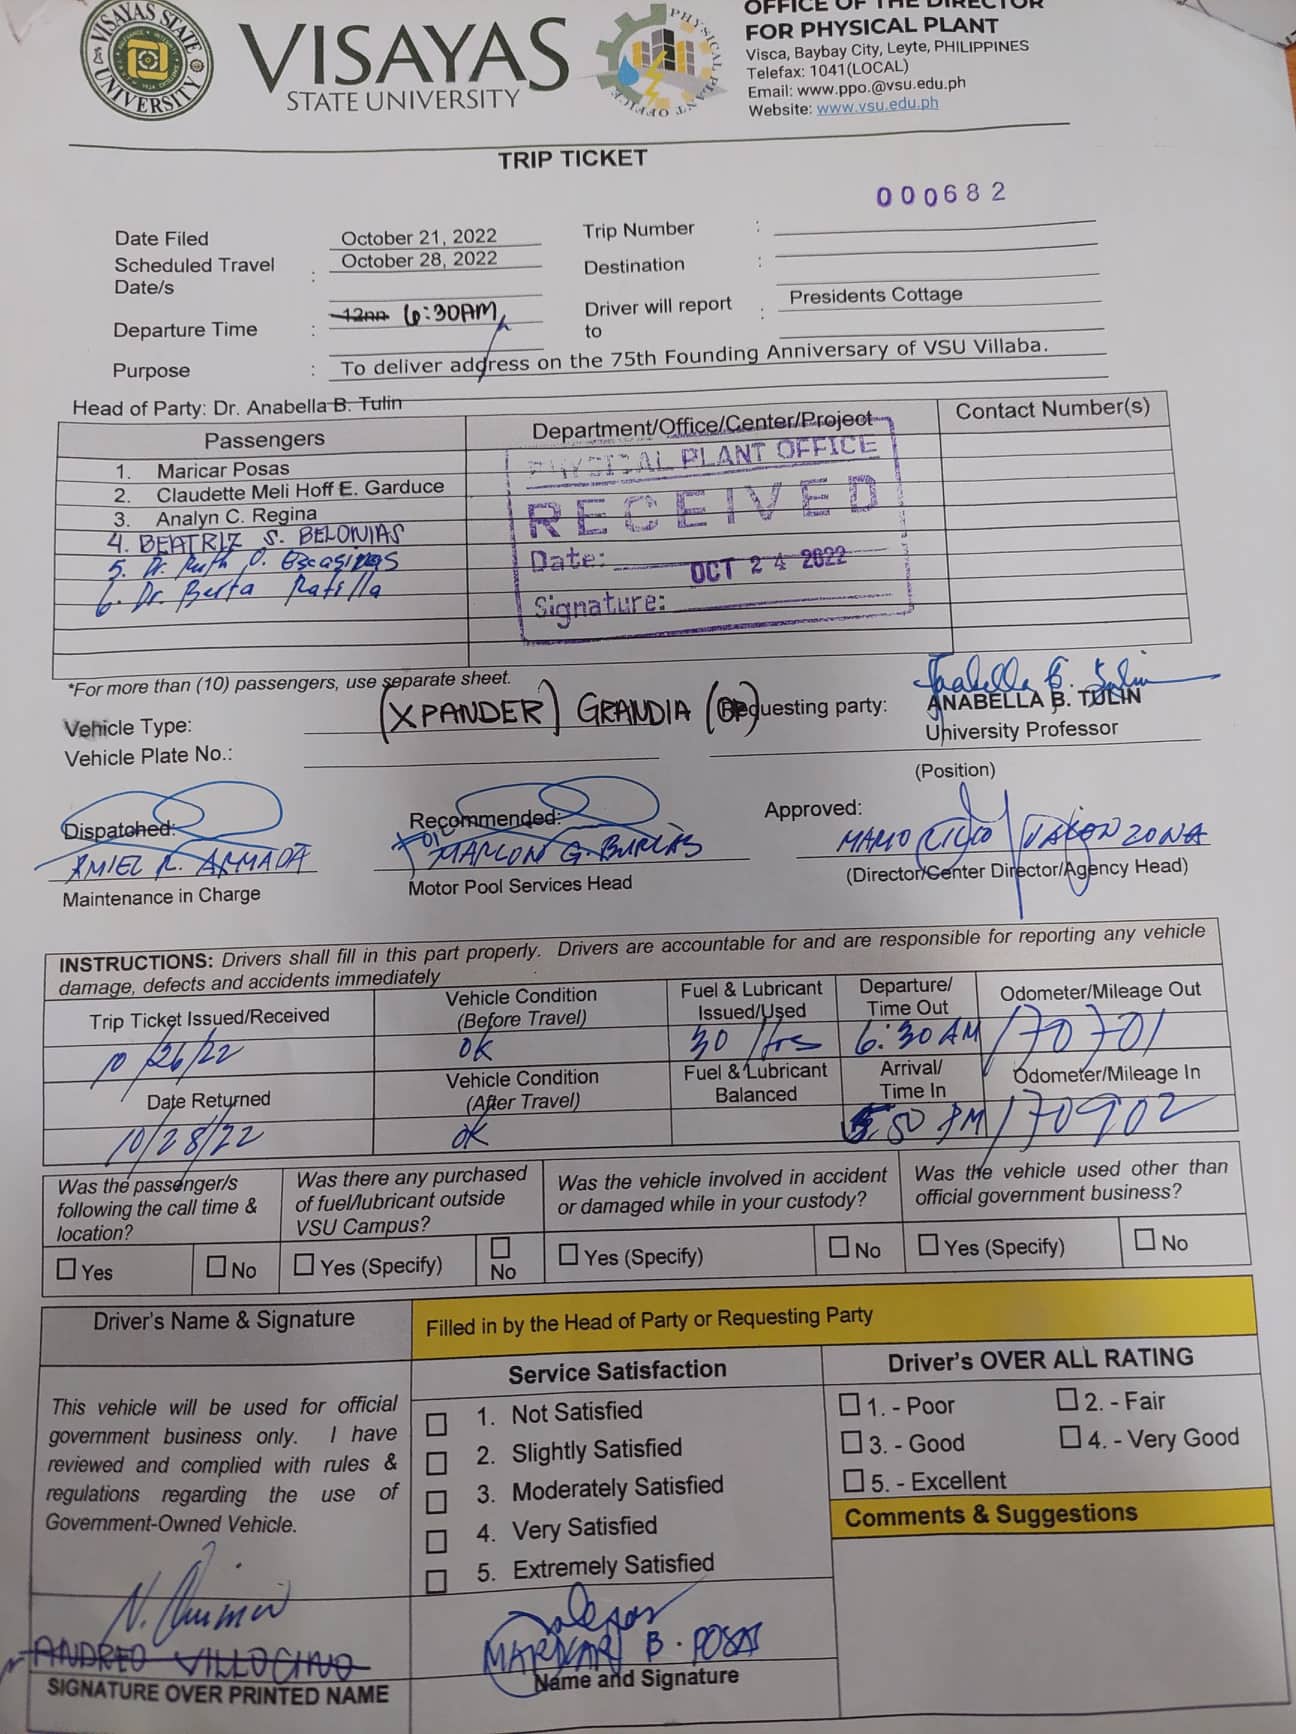 VISAYAS STATE UNIVERSITY
VISAYAS
STATE UNIVERSITY
PHYSICAL PLANT OFFICE
OFFICE OF THE DIRECTOR
FOR PHYSICAL PLANT
Visca, Baybay City, Leyte, PHILIPPINES
Telefax: 1041(LOCAL)
Email: www.ppo.@vsu.edu.ph
Website: www.vsu.edu.ph
TRIP TICKET
000682
Date Filed October 21, 2022 Trip Number :
Scheduled Travel Date/s : October 28, 2022 Destination :
Departure Time : 12nn 6:30AM Driver will report to : Presidents Cottage
Purpose : To deliver address on the 75th Founding Anniversary of VSU Villaba.
Head of Party: Dr. Anabella B. Tulin
Passengers Department/Office/Center/Project Contact Number(s)
1. Maricar Posas
2. Claudette Meli Hoff E. Garduce
3. Analyn C. Regina
4. BEATRIZ S. BELONIAS
5. Dr. Ruth O. Escasinas
6. Dr. Berta Ratilla
PHYSICAL PLANT OFFICE
RECEIVED
Date: OCT 24 2022
Signature:
*For more than (10) passengers, use separate sheet.
Vehicle Type: (XPANDER) GRANDIA (OP) Requesting party: ANABELLA B. TULIN
Vehicle Plate No.: University Professor
(Position)
Dispatched: Recommended: Approved:
AMIEL R. ARMADA MARLON G. BURLAS MARIO LILIO VALENZONA
Maintenance in Charge Motor Pool Services Head (Director/Center Director/Agency Head)
INSTRUCTIONS: Drivers shall fill in this part properly. Drivers are accountable for and are responsible for reporting any vehicle
damage, defects and accidents immediately
Trip Ticket Issued/Received Vehicle Condition (Before Travel) Fuel & Lubricant Issued/Used Departure/ Time Out Odometer/Mileage Out
10/26/22 OK 30 ltrs 6:30 AM 170701
Date Returned Vehicle Condition (After Travel) Fuel & Lubricant Balanced Arrival/ Time In Odometer/Mileage In
10/28/22 OK 5:50 PM 170902
Was the passenger/s following the call time & location? Was there any purchased of fuel/lubricant outside VSU Campus? Was the vehicle involved in accident or damaged while in your custody? Was the vehicle used other than official government business?
Yes No Yes (Specify) No Yes (Specify) No Yes (Specify) No
Driver's Name & Signature Filled in by the Head of Party or Requesting Party
Service Satisfaction Driver's OVER ALL RATING
This vehicle will be used for official
government business only. I have
reviewed and complied with rules &
regulations regarding the use of
Government-Owned Vehicle.
1. Not Satisfied
2. Slightly Satisfied
3. Moderately Satisfied
4. Very Satisfied
5. Extremely Satisfied
1. - Poor 2. - Fair
3. - Good 4. - Very Good
5. - Excellent
Comments & Suggestions
ANDREO VILLOCINO
SIGNATURE OVER PRINTED NAME
MARICAR B. POSAS
Name and Signature